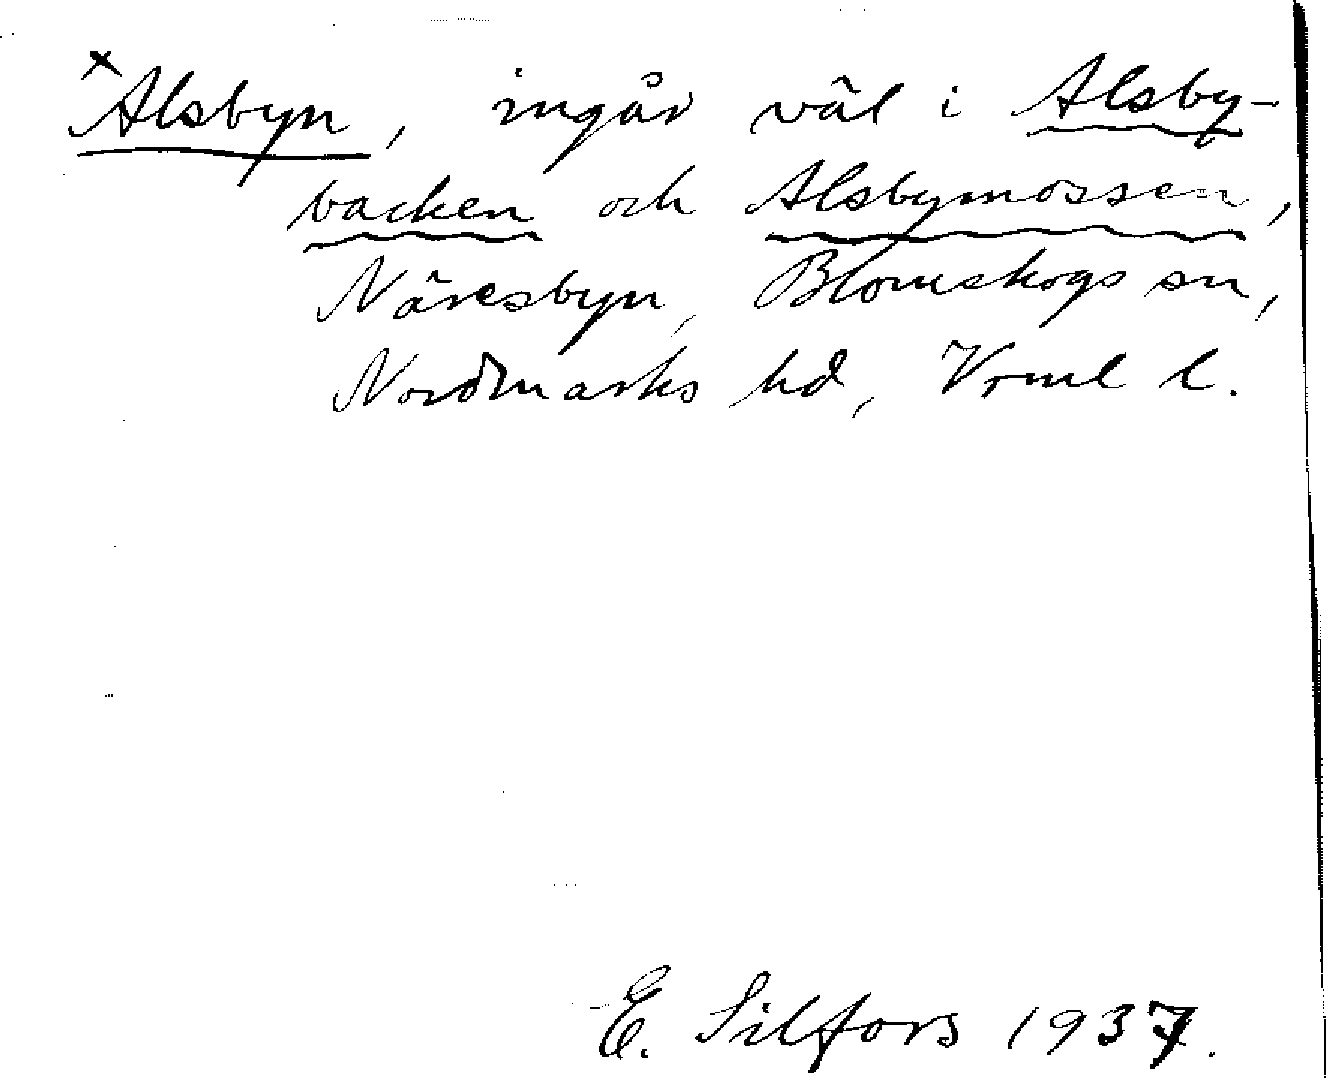 ×Alsbyn, ingår väl i Alsby-
backen och Alsbymossen,
Näresbyn, Blomskogs sn,
Nordmarks hd, Vrml l.
E. Silfors 1937.